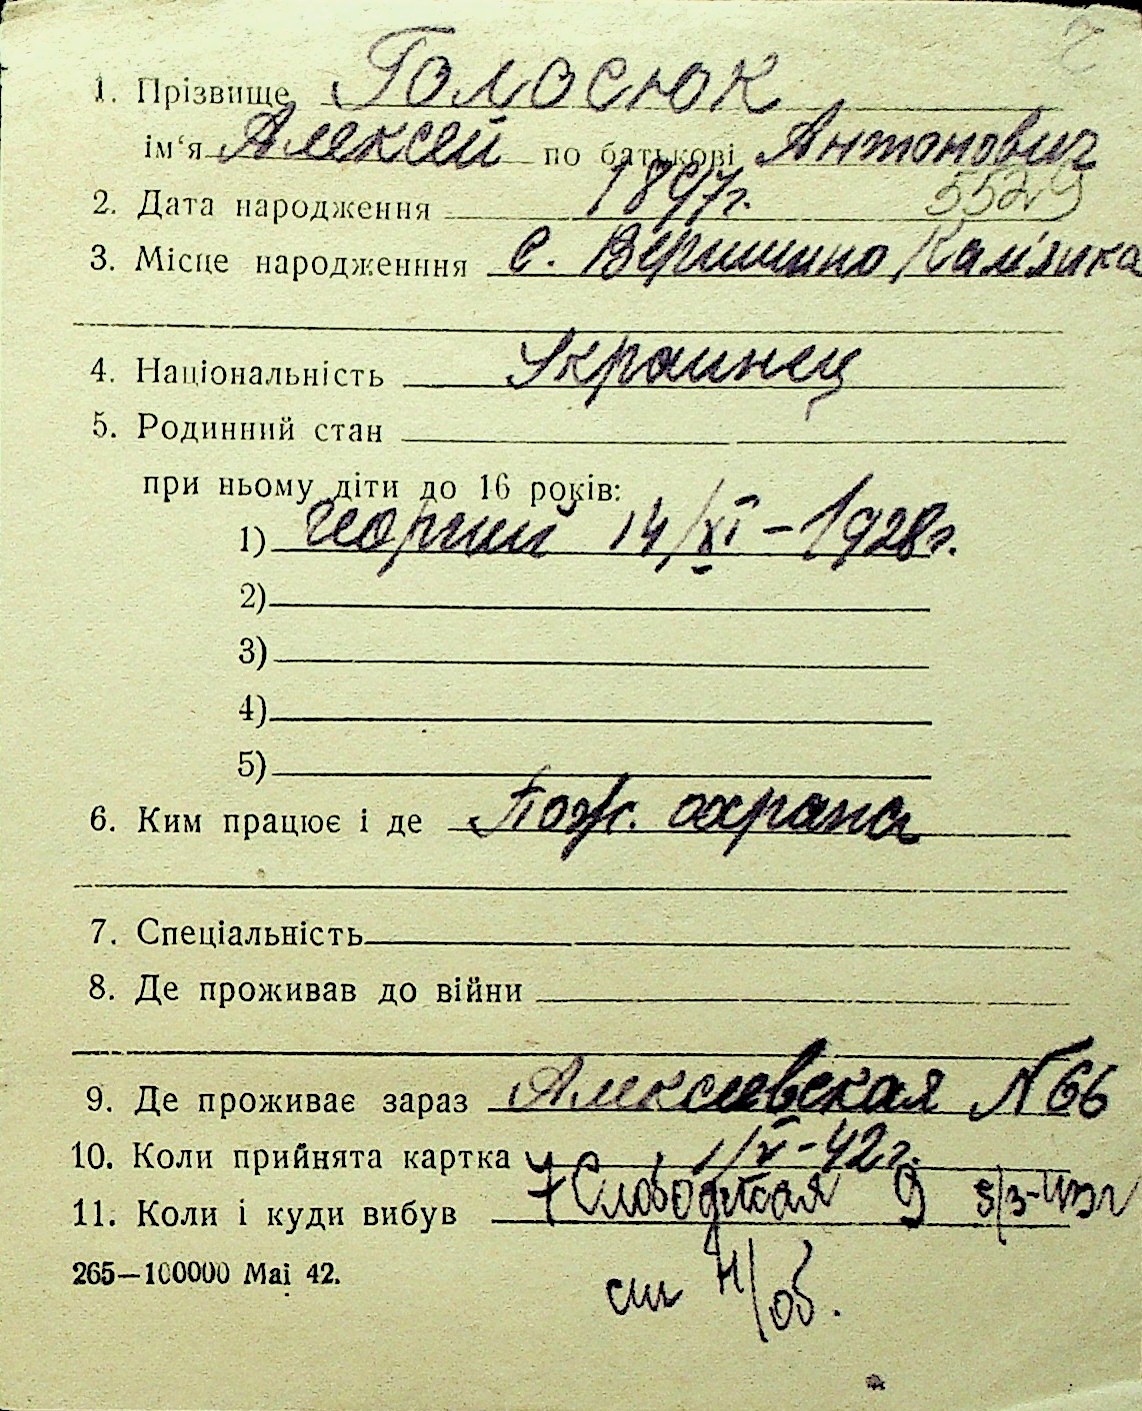 1. Прізвище Голосюк
ім'я Алексей по батькові Антонович
2. Дата народження 1897г. 5529
3. Місце народженння с. Вершино Кам'янка
4. Національність Украинец
5. Родинний стан
при ньому діти до 16 років:
1) Георгий 14/XI-1928г.
2)
3)
4)
5)
6. Ким працює і де Пож. охрана
7. Спеціальність
8. Де проживав до війни
9. Де проживає зараз Алексеевская N 66
10. Коли прийнята картка 1/V-42г.
11. Коли і куди вибув 7 Слободская 9 5/3-43г
265—100000 Mai 42.
см н/об.